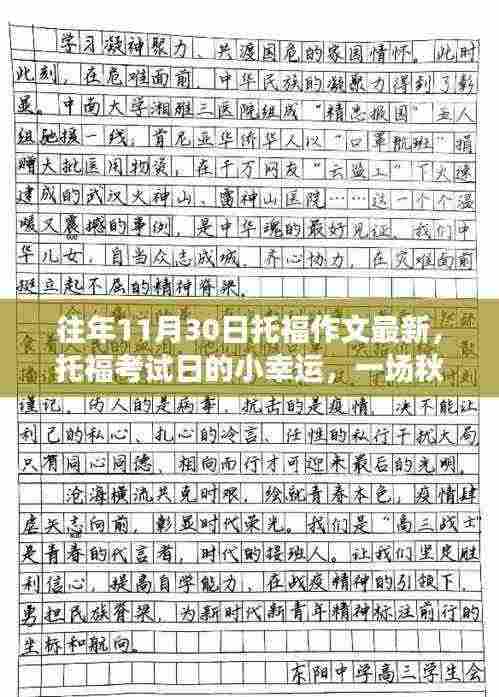 学习凝神聚力、共渡国危的家国情怀。此时
此刻，在危难面前，中华民族的凝聚力得到了彰
显。中南大学湘雅三医院组成“精忠报国”五人
组驰援一线，肯尼亚华侨华人以“口罩航班”捐
赠大批医用物资，在千万网友“云监工”下火速
建成的武汉火神山、雷神山医院……这一个个温
暖又震撼的事例，是中华魂的最好见证。我们中
华儿女，自当众志成城、齐心协力，在灾难面
前挺立起不屈的精神脊梁。
往年11月30日托福作文最新，
托福考试日的小幸运，一场秋
谨记，伤人的是病毒，抗击的是疫情，决不能让
利己的私心、扎心的冷言、任性的私行干扰大局
只有同心同德、相向而行才可迎来最后的光明。
沧海横流共克时艰，绘就青春本色，疫情肆
虐矢志向前，彰显时代荣光。我们是“高三战士”
是青春的代言者，时代的接班人。让我们坚定胜
利信心，提高自学能力，在战疫精神的引领下，
勇担民族脊梁，为新时代新青年精神标注前行的
坐标和航向。
东阳中学高三学生会